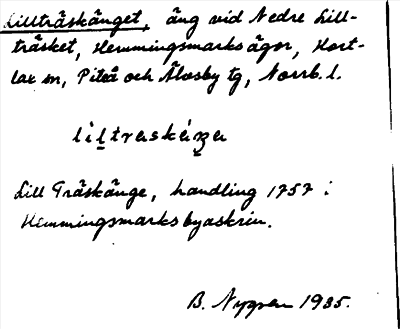 Lillträskänget, äng vid Nedre Lill-
träsket, Hemmingsmarks ägor, Hort-
lax sn, Piteå och Älvsby tg, Norrb. l.
Lill Träskänge, handling 1757 i
Hemmingsmarks byaskrin.
B. Nygren 1935.